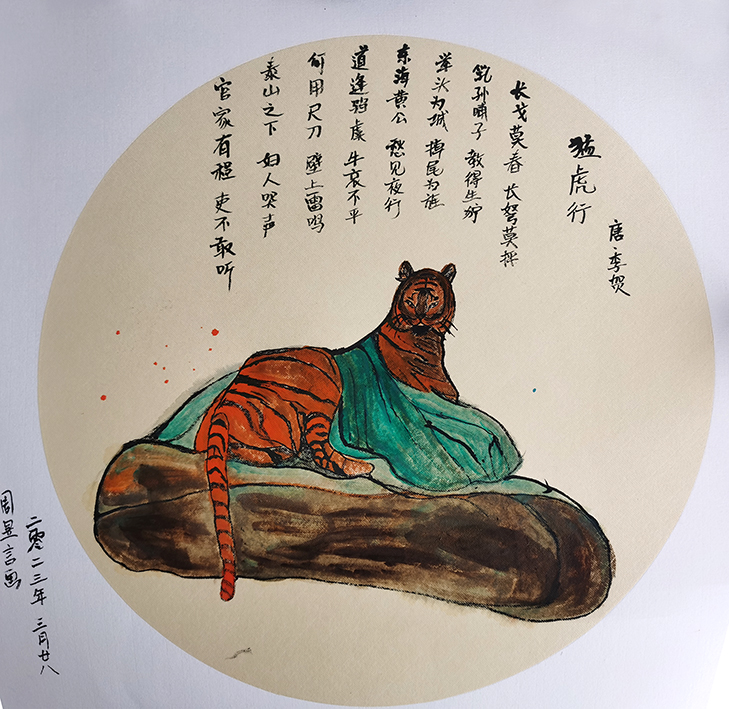 猛虎行
唐·李贺
长戈莫春 长弩莫抨
乳孙哺子 教得生狞
举头为城 掉尾为旌
东海黄公 愁见夜行
道逢驺虞 牛哀不平
何用尺刀 壁上雷鸣
泰山之下 妇人哭声
官家有程 吏不敢听
二零二三年 三月廿八
周昱言画